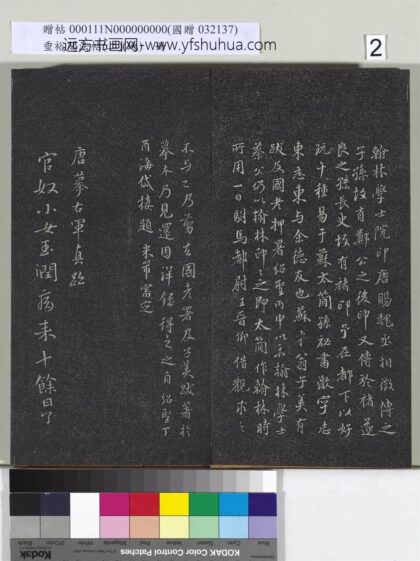 贈帖 000111N000000000(國贈 032137)
远方书画网-www.yfshuhua.com
2
翰林學士院印唐賜魏丞相徵傳之
子孫故有鄭公之後印又傳於褚遂
良之孫長史故有褚印予在都下以好
玩十種易于蘇太簡孫祕書激字志
東志東與余德友也蘇才翁子美有
跋及國老押署紹聖丙申以示翰林學士
蔡公仍以翰林印印之即太簡作翰林時
所用一日駙馬都尉王晉卿借觀求之
不與已乃剪去國老署及子美跋著於
摹本乃見還因詳錄得之之自紹聖丁
丙海岱樓題 米芾審定
唐摹右軍真跡
官奴小女玉潤病来十餘日了
KODAK Color Control Patches
Blue
Cyan
Green
Yellow
Red
Magenta
White
3/Color
Black